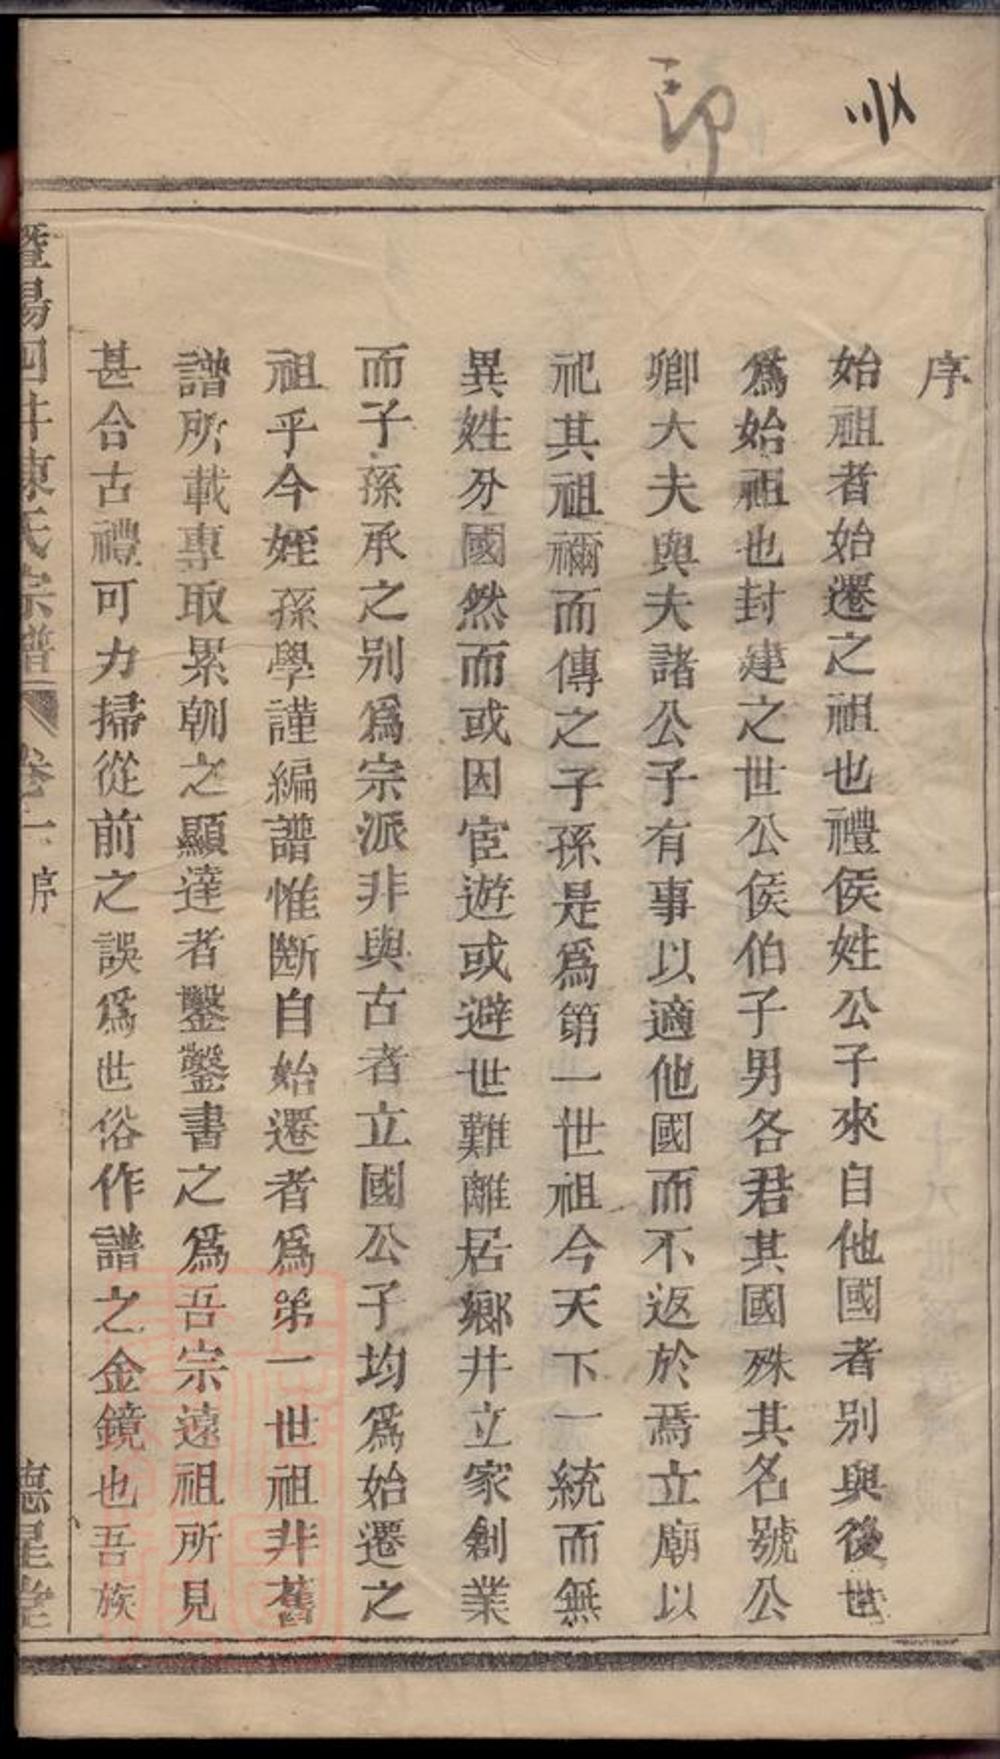 印
序
始祖者始遷之祖也禮侯姓公子來自他國者別與後世
爲始祖也封建之世公侯伯子男各君其國殊其名號公
卿大夫與夫諸公子有事以適他國而不返於焉立廟以
祀其祖禰而傳之子孫是爲第一世祖今天下一統而無
異姓分國然而或因宦遊或避世難離居鄉井立家創業
而子孫承之別爲宗派非與古者立國公子均爲始遷之
祖乎今姪孫學謹編譜惟斷自始遷者爲弟一世祖非舊
譜所載專取累朝之顯達者鑿鑿書之爲吾宗遠祖所見
甚合古禮可力掃從前之誤爲世俗作譜之金鏡也吾族
暨陽四井陳氏宗譜 卷一 序 德星堂